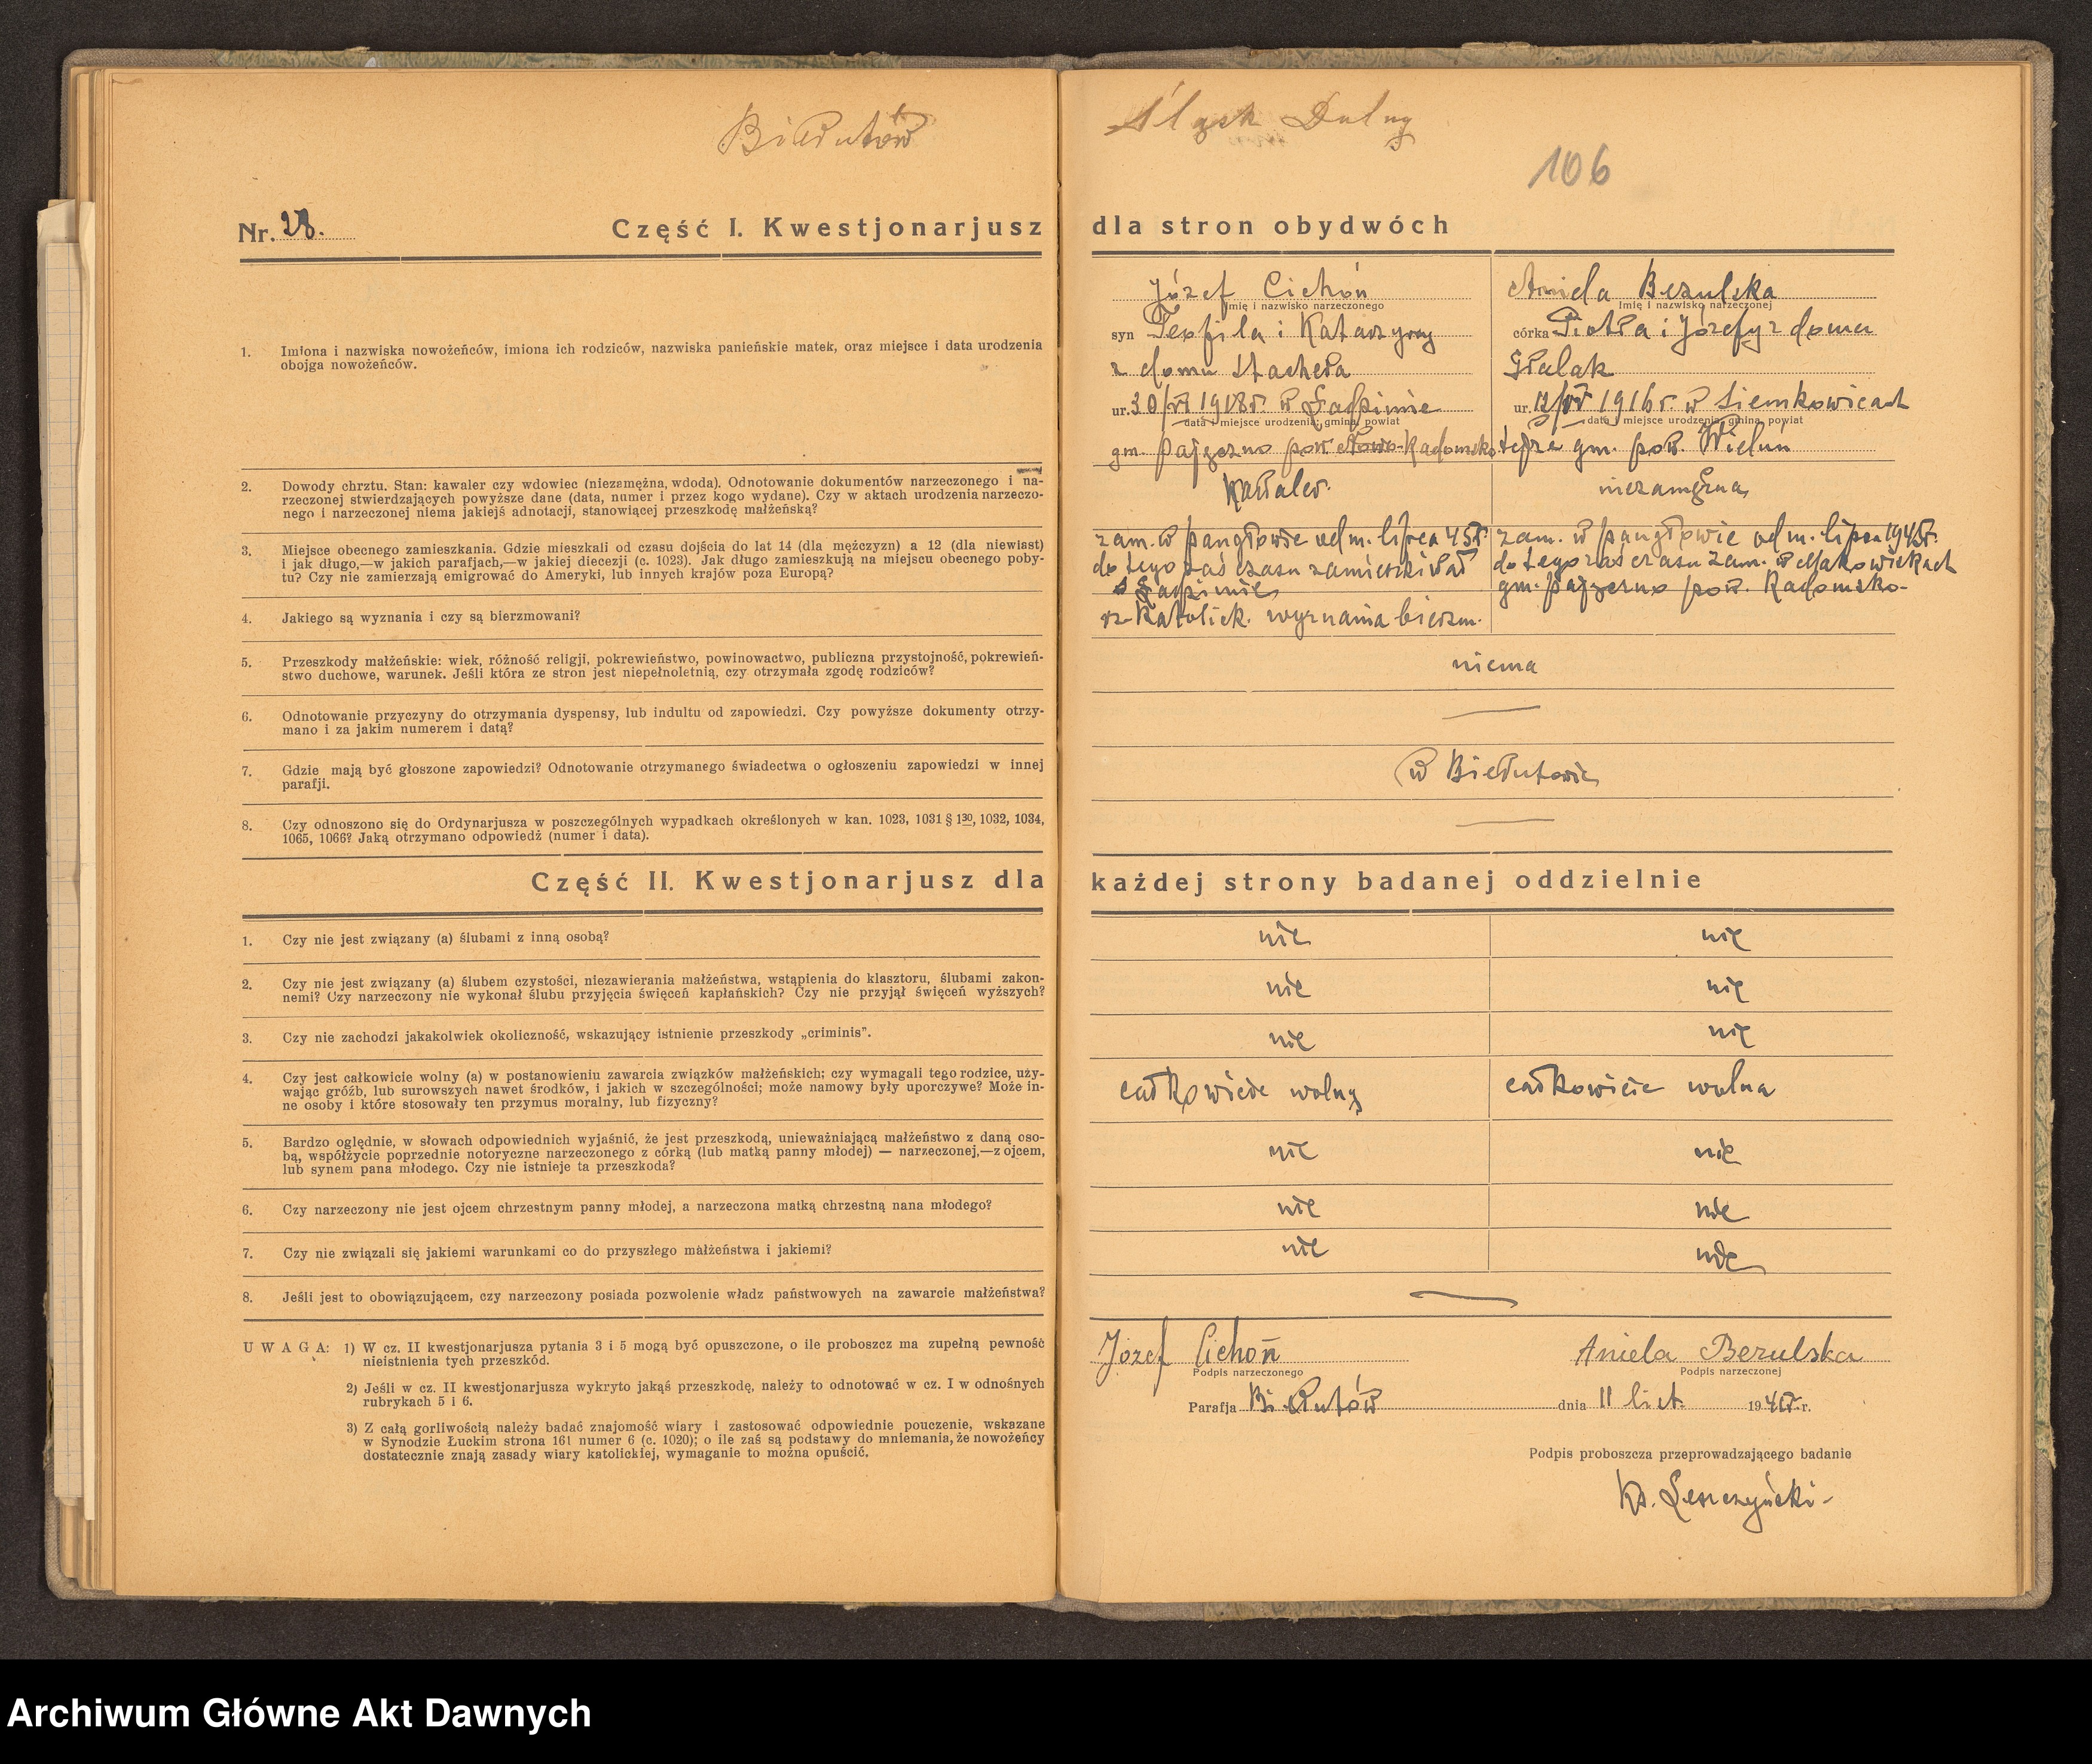 Bierutów
Śląsk Dolny
106
Nr. 28.
Część I. Kwestjonarjusz
dla stron obydwóch
1. Imiona i nazwiska nowożeńców, imiona ich rodziców, nazwiska panieńskie matek, oraz miejsce i data urodzenia
obojga nowożeńców.
2. Dowody chrztu. Stan: kawaler czy wdowiec (niezamężna, wdoda). Odnotowanie dokumentów narzeczonego i na-
rzeczonej stwierdzających powyższe dane (data, numer i przez kogo wydane). Czy w aktach urodzenia narzeczo-
nego i narzeczonej niema jakiejś adnotacji, stanowiącej przeszkodę małżeńską?
3. Miejsce obecnego zamieszkania. Gdzie mieszkali od czasu dojścia do lat 14 (dla mężczyzn) a 12 (dla niewiast)
i jak długo,—w jakich parafjach,—w jakiej diecezji (c. 1023). Jak długo zamieszkują na miejscu obecnego poby-
tu? Czy nie zamierzają emigrować do Ameryki, lub innych krajów poza Europą?
4. Jakiego są wyznania i czy są bierzmowani?
5. Przeszkody małżeńskie: wiek, różność religji, pokrewieństwo, powinowactwo, publiczna przystojność, pokrewień-
stwo duchowe, warunek. Jeśli która ze stron jest niepełnoletnią, czy otrzymała zgodę rodziców?
6. Odnotowanie przyczyny do otrzymania dyspensy, lub indultu od zapowiedzi. Czy powyższe dokumenty otrzy-
mano i za jakim numerem i datą?
7. Gdzie mają być głoszone zapowiedzi? Odnotowanie otrzymanego świadectwa o ogłoszeniu zapowiedzi w innej
parafji.
8. Czy odnoszono się do Ordynarjusza w poszczególnych wypadkach określonych w kan. 1023, 1031 § 1 30, 1032, 1034,
1065, 1066? Jaką otrzymano odpowiedź (numer i data).
Józef Cichoń
Imię i nazwisko narzeczonego
syn Teofila i Katarzyny
z domu Stachera
ur. 30/VI 1918 r. w
data i miejsce urodzenia, gmina, powiat
gm. Pajęczno pow. Radomsko
Kawaler.
zam. w Pangłowie od m. lipca 45 r.
do tego zaś czasu zamieszkiwał
rz. Katolick. wyznania bierzm.
Aniela Bezulska
Imię i nazwisko narzeczonej
córka Piotra i Józefy z domu
Gralak
ur. 1916 r. w Siemkowicach
data i miejsce urodzenia, gmina, powiat
tejże gm. pow. Wieluń
niezamężna
zam. w Pangłowie od m. lipca 1945 r.
do tego zaś czasu zam. w Makowiskach
gm. Pajęczno pow. Radomsko-
niema
w Bierutowie
Część II. Kwestjonarjusz dla
każdej strony badanej oddzielnie
1. Czy nie jest związany (a) ślubami z inną osobą?
nie nie
2. Czy nie jest związany (a) ślubem czystości, niezawierania małżeństwa, wstąpienia do klasztoru, ślubami zakon-
nemi? Czy narzeczony nie wykonał ślubu przyjęcia święceń kapłańskich? Czy nie przyjął święceń wyższych?
nie nie
3. Czy nie zachodzi jakakolwiek okoliczność, wskazujący istnienie przeszkody „criminis".
nie nie
4. Czy jest całkowicie wolny (a) w postanowieniu zawarcia związków małżeńskich; czy wymagali tego rodzice, uży-
wając gróźb, lub surowszych nawet środków, i jakich w szczególności; może namowy były uporczywe? Może in-
ne osoby i które stosowały ten przymus moralny, lub fizyczny?
całkowicie wolny całkowicie wolna
5. Bardzo oględnie, w słowach odpowiednich wyjaśnić, że jest przeszkodą, unieważniającą małżeństwo z daną oso-
bą, współżycie poprzednie notoryczne narzeczonego z córką (lub matką panny młodej) — narzeczonej,—z ojcem,
lub synem pana młodego. Czy nie istnieje ta przeszkoda?
nie nie
6. Czy narzeczony nie jest ojcem chrzestnym panny młodej, a narzeczona matką chrzestną nana młodego?
nie nie
7. Czy nie związali się jakiemi warunkami co do przyszłego małżeństwa i jakiemi?
nie nie
8. Jeśli jest to obowiązującem, czy narzeczony posiada pozwolenie władz państwowych na zawarcie małżeństwa?
UWAGA: 1) W cz. II kwestjonarjusza pytania 3 i 5 mogą być opuszczone, o ile proboszcz ma zupełną pewność
nieistnienia tych przeszkód.
2) Jeśli w cz. II kwestjonarjusza wykryto jakąś przeszkodę, należy to odnotować w cz. I w odnośnych
rubrykach 5 i 6.
3) Z całą gorliwością należy badać znajomość wiary i zastosować odpowiednie pouczenie, wskazane
w Synodzie Łuckim strona 161 numer 6 (c. 1020); o ile zaś są podstawy do mniemania, że nowożeńcy
dostatecznie znają zasady wiary katolickiej, wymaganie to można opuścić.
Józef Cichoń
Podpis narzeczonego
Aniela Bezulska
Podpis narzeczonej
Parafja Bierutów dnia 11 list. 1945 r.
Podpis proboszcza przeprowadzającego badanie
Ks. Leszczyński
Archiwum Główne Akt Dawnych